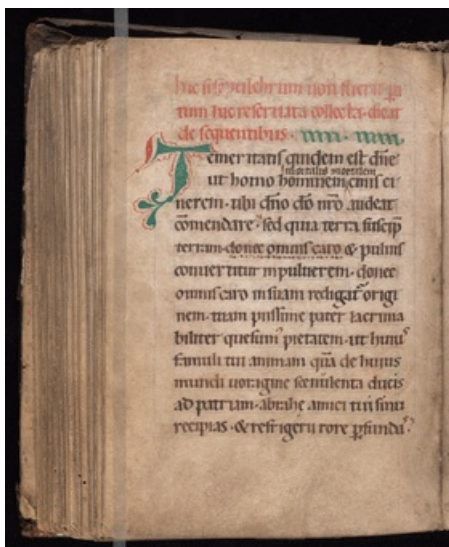 huc si sepulchrum non fuerit pa
tum huc reseruata collecta. dicat
de sequentibus.
Temeritatis quidem est dñe
mortalis mortalem
ut homo hominem cinis ci
nerem. tibi dño dō nrō audeat
cōmendare. sed quia terra suscip
terram. donec omnis caro & puluis
conuertitur in puluerem. donec
omnis caro in suam redigat origi
nem. tuam piissime pater lacrima
biliter quesum pietatem. ut huiuˀ
famuli tui animam quā de huius
mundi uoragine cenulenta ducis
ad patriam. abrahe amici tui sinu
recipias. & refrigerii rore pfunda